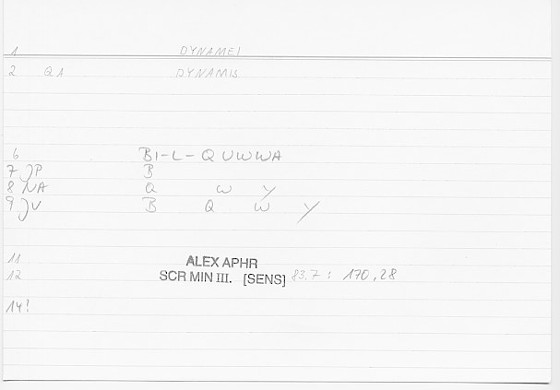 1 DYNAMEI
2 QA DYNAMIS
6 BI-L-QUWWA
7 JP B
8 NA Q W Y
9 JV B Q W Y
11 ALEX APHR
12 SCR MIN III. [SENS] 83.7: 170,28
14!